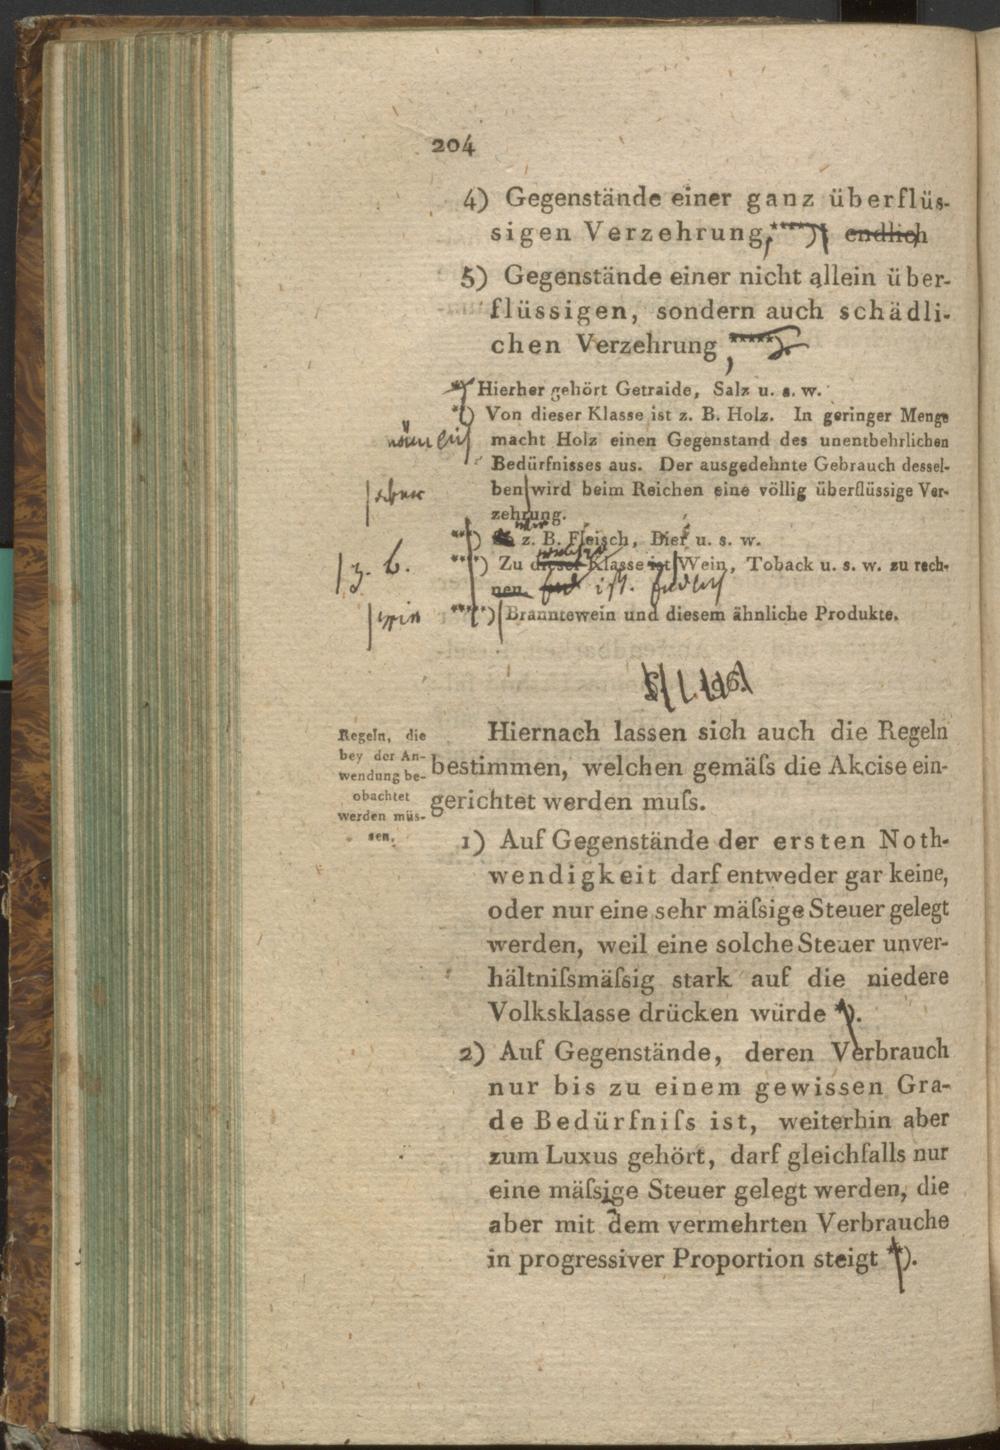 204
4) Gegenstände einer ganz überflüs-
sigen Verzehrung, ****) endlich
5) Gegenstände einer nicht allein über-
flüssigen, sondern auch schädli-
chen Verzehrung, *****).
*) Hierher gehört Getraide, Salz u. s. w.
**) Von dieser Klasse ist z. B. Holz. In geringer Menge
nämlich
macht Holz einen Gegenstand des unentbehrlichen
Bedürfnisses aus. Der ausgedehnte Gebrauch dessel-
aber
ben wird beim Reichen eine völlig überflüssige Ver-
zehrung.
***) z. B. Fleisch, Bier u. s. w.
z. B.
****) Zu dieser Klasse ist Wein, Toback u. s. w. zu rech-
nen. ist. Endlich
*****) Branntewein und diesem ähnliche Produkte.
Regeln, die
bey der An-
wendung be-
obachtet
werden müs-
sen.
Hiernach lassen sich auch die Regeln
bestimmen, welchen gemäſs die Akcise ein-
gerichtet werden muſs.
1) Auf Gegenstände der ersten Noth-
wendigkeit darf entweder gar keine,
oder nur eine sehr mäſsige Steuer gelegt
werden, weil eine solche Steuer unver-
hältniſsmäſsig stark auf die niedere
Volksklasse drücken würde *).
2) Auf Gegenstände, deren Verbrauch
nur bis zu einem gewissen Gra-
de Bedürfniſs ist, weiterhin aber
zum Luxus gehört, darf gleichfalls nur
eine mäſsige Steuer gelegt werden, die
aber mit dem vermehrten Verbrauche
in progressiver Proportion steigt **).